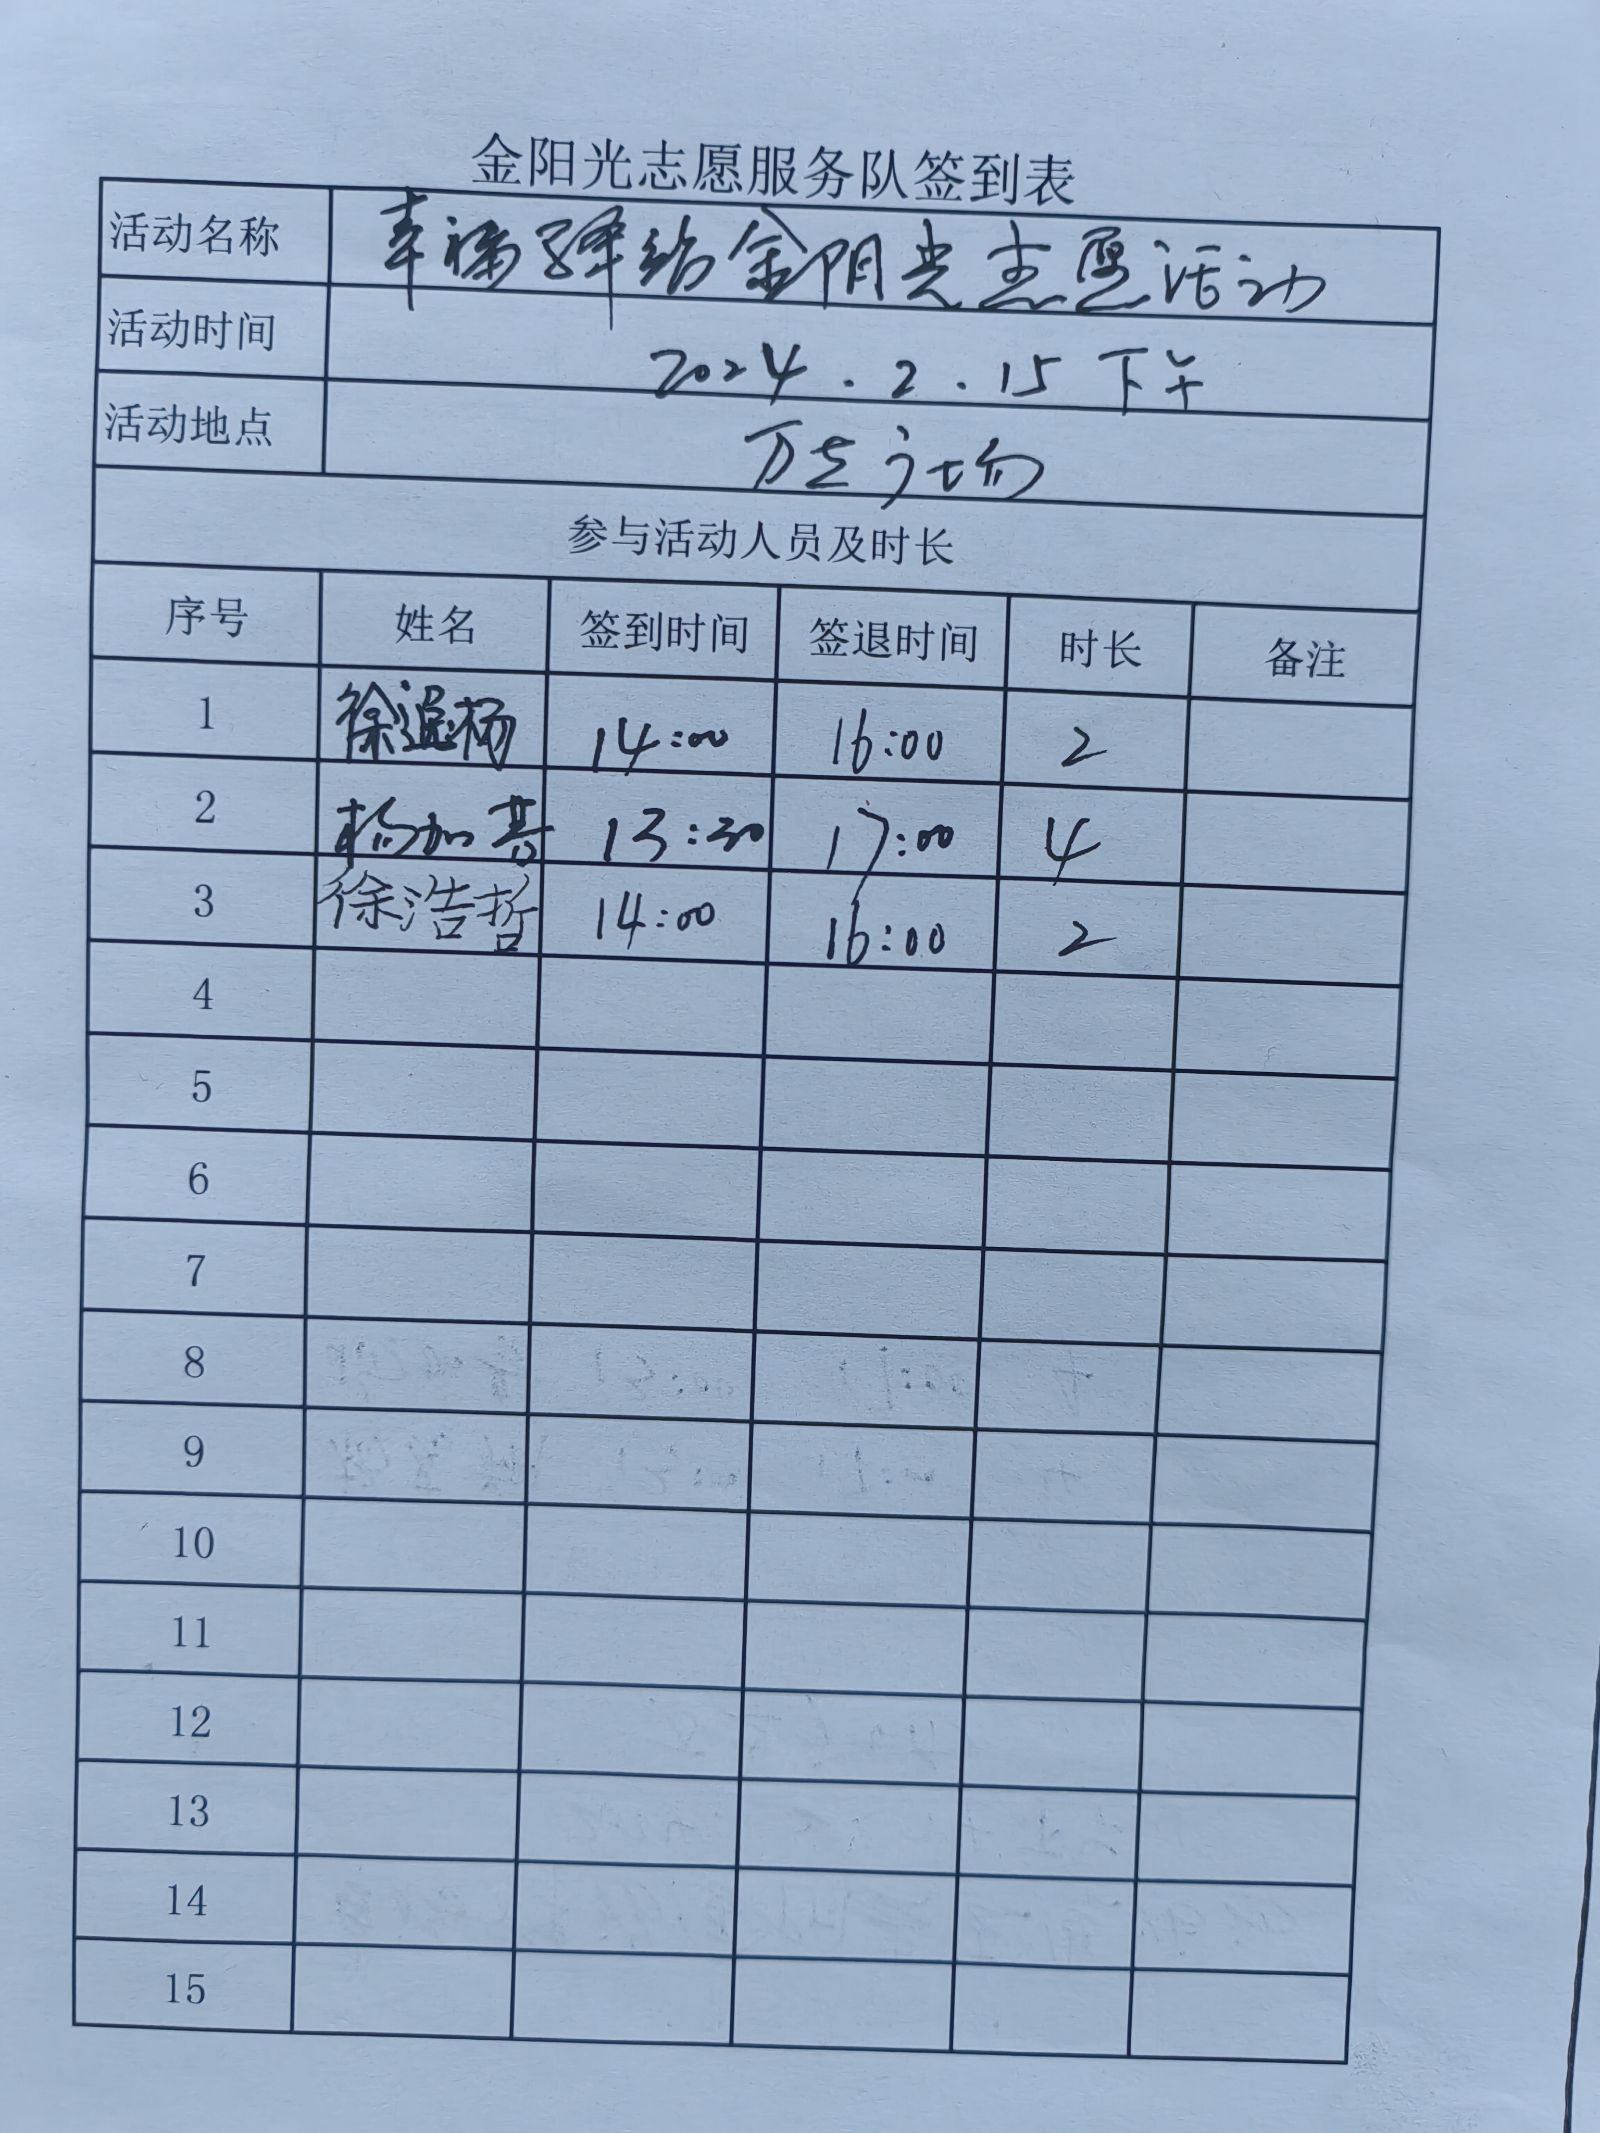 金阳光志愿服务队签到表
活动名称 幸福驿站金阳光志愿活动
活动时间 2024.2.15 下午
活动地点 万达广场
参与活动人员及时长
序号 姓名 签到时间 签退时间 时长 备注
1 徐逸杨 14:00 16:00 2
2 杨加 13:30 17:00 4
3 徐浩哲 14:00 16:00 2
4
5
6
7
8
9
10
11
12
13
14
15